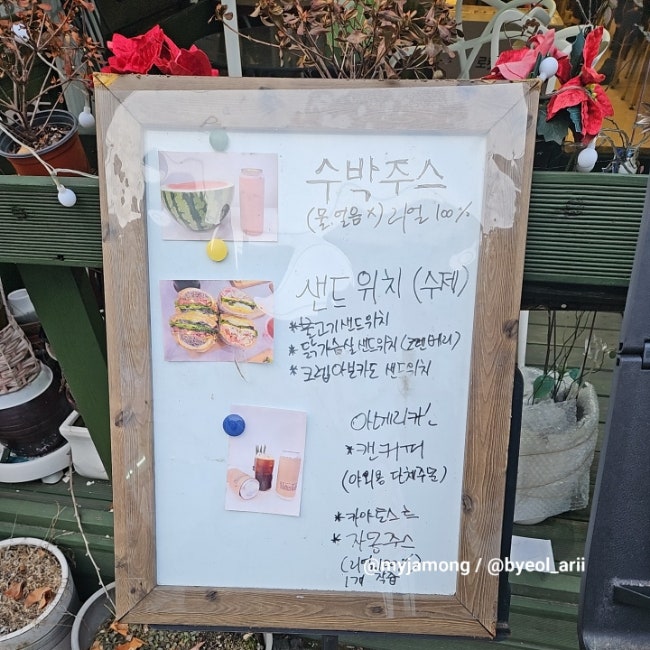 수박주스
(물.얼음 X) 리얼 100%
샌드위치 (수제)
*불고기샌드위치
*닭가슴살샌드위치(크랜베리)
*크랩아보카도 샌드위치
아메리카노
*캔커피
(야외용 단체주문)
*카야토스트
*자몽주스
1개 착즙
@myjamong / @byeol_arii